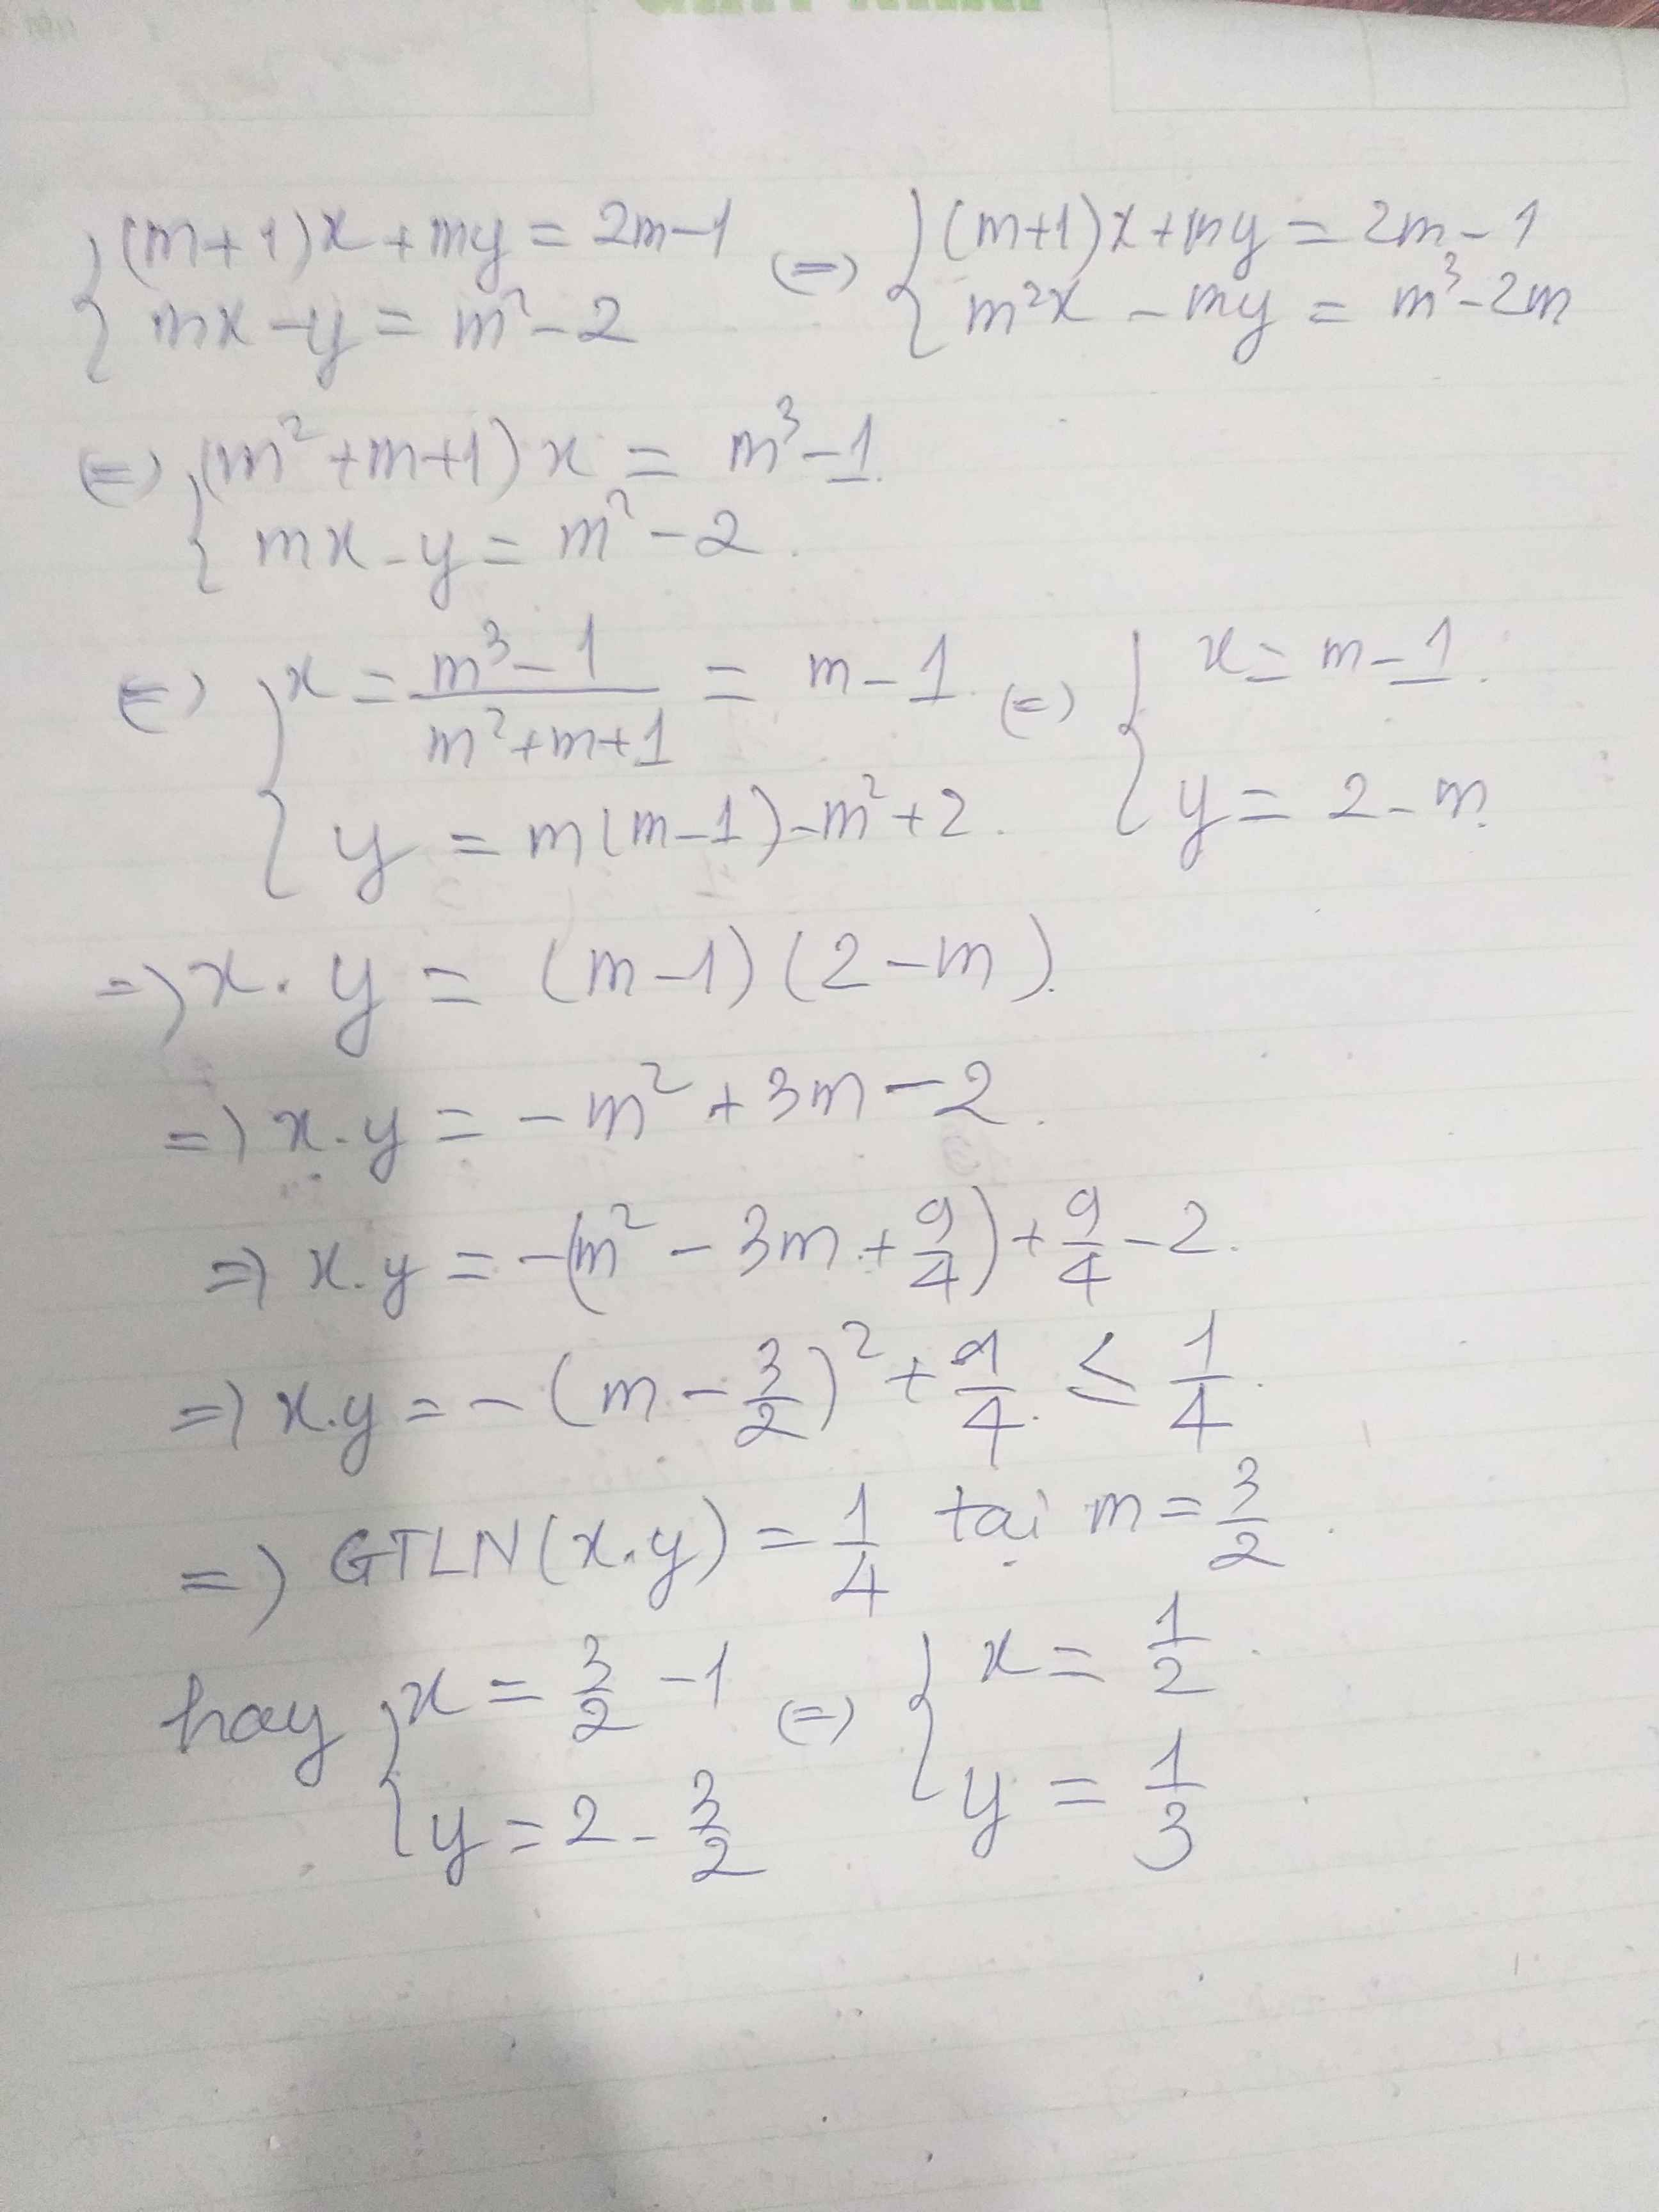 {(m+1)x+my=2m-1 (=) {(m+1)x+my=2m-1
mx-y=m²-2 m²x-my=m³-2m
(=) {(m²+m+1)x=m³-1.
mx-y=m²-2.
(=) {x=\frac{m³-1}{m²+m+1}=m-1. (=) {x=m-1.
y=m(m-1)-m²+2. y=2-m.
=) x.y=(m-1)(2-m).
=) x.y=-m²+3m-2.
=) x.y=-(m²-3m+\frac{9}{4})+\frac{9}{4}-2.
=) x.y=-(m-\frac{3}{2})²+\frac{1}{4}. ≤ \frac{1}{4}.
=) GTLN(x.y)=\frac{1}{4} tại m=\frac{3}{2}.
hay {x=\frac{3}{2}-1 (=) {x=\frac{1}{2}.
y=2-\frac{3}{2} y=\frac{1}{3}.